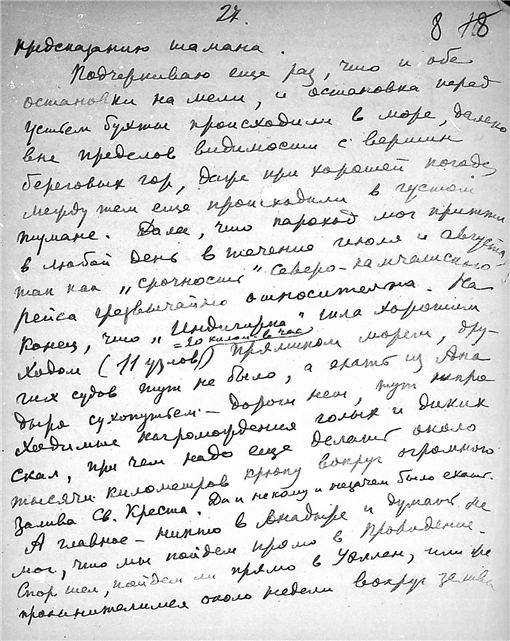 27.
8 18
предсказанию шамана.
Подчеркиваю еще раз, что и обе
остановки на мели, и остановка перед
устьем бухты происходили в море, далеко
вне пределов видимости с вершин
береговых гор, даже при хорошей погоде,
между тем еще происходили в густом
тумане. Далее, что пароход мог притти
в любой день в течение июля и августа,
так как „срочность" северо-камчатского
рейса чрезвычайно относительна. На
конец, что „Индигирка" шла хорошим
= 20 килом в час
ходом (11 узлов) прямиком морем, дру-
гих судов тут не было, а ехать из Ана
дыря сухопутьем — дороги нет, тут непро
ходимые нагромождения голых и диких
скал, при чем надо еще делать около
тысячи километров крюку вокруг огромного
залива Св. Креста. Да и некому и незачем было ехать.
А главное — никто в Анадыре и думать не
мог, что мы пойдем прямо в Провидение.
Спор шел, пойдем ли прямо в Уэллен, или же
около недели вокруг залива